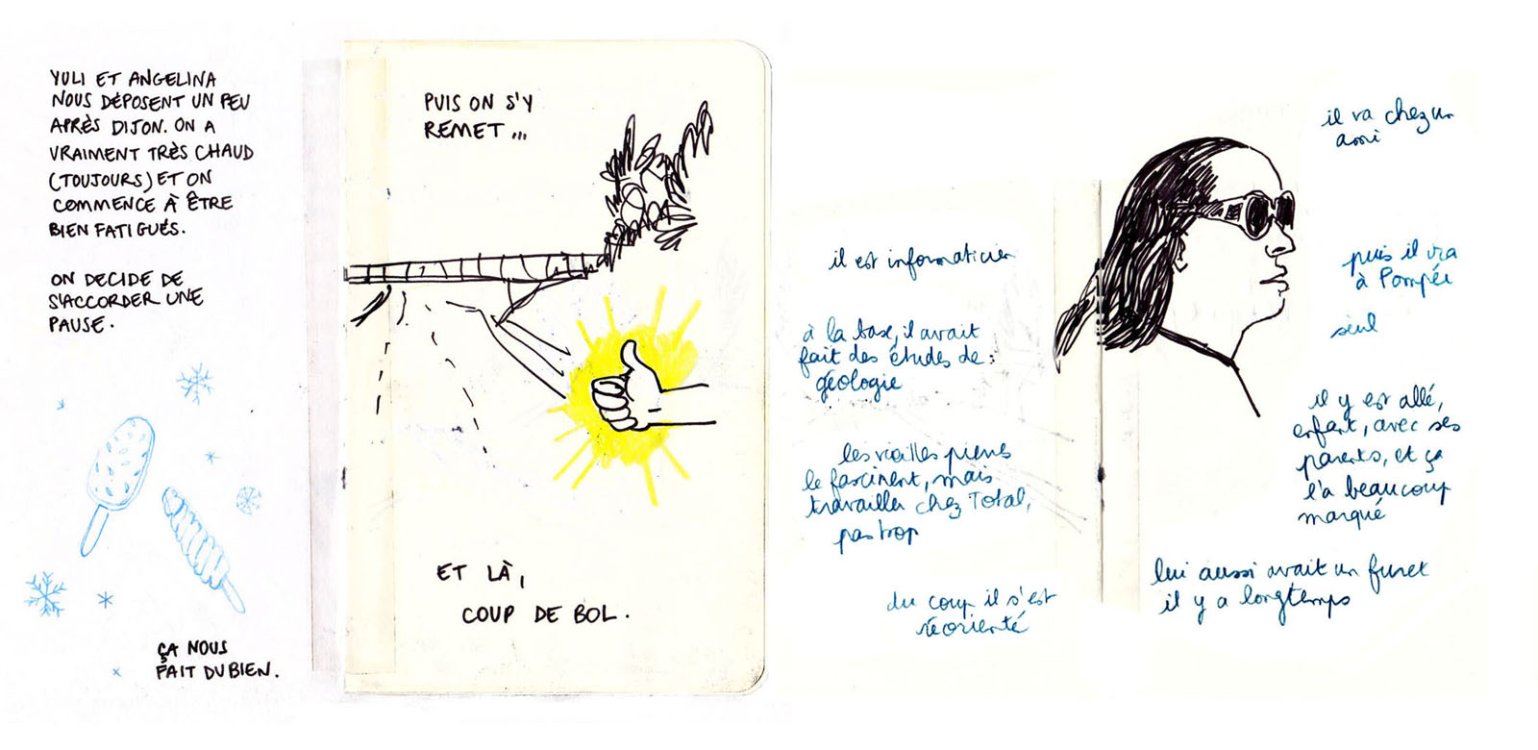 YULI ET ANGELINA
NOUS DÉPOSENT UN PEU
APRÈS DIJON. ON A
VRAIMENT TRÈS CHAUD
(TOUJOURS) ET ON
COMMENCE À ÊTRE
BIEN FATIGUÉS.
ON DECIDE DE
S'ACCORDER UNE
PAUSE.
ÇA NOUS
FAIT DU BIEN.
PUIS ON S'Y
REMET...
ET LÀ,
COUP DE BOL.
il est informaticien
à la base, il avait
fait des études de :
géologie
les vieilles pierres
le fascinent, mais
travailler chez Total,
pas trop
du coup il s'est
réorienté
il va chez un
ami
puis il va
à Pompéi
seul
il y est allé,
enfant, avec ses
parents, et ça
l'a beaucoup
marqué
lui aussi avait un furet
il y a longtemps